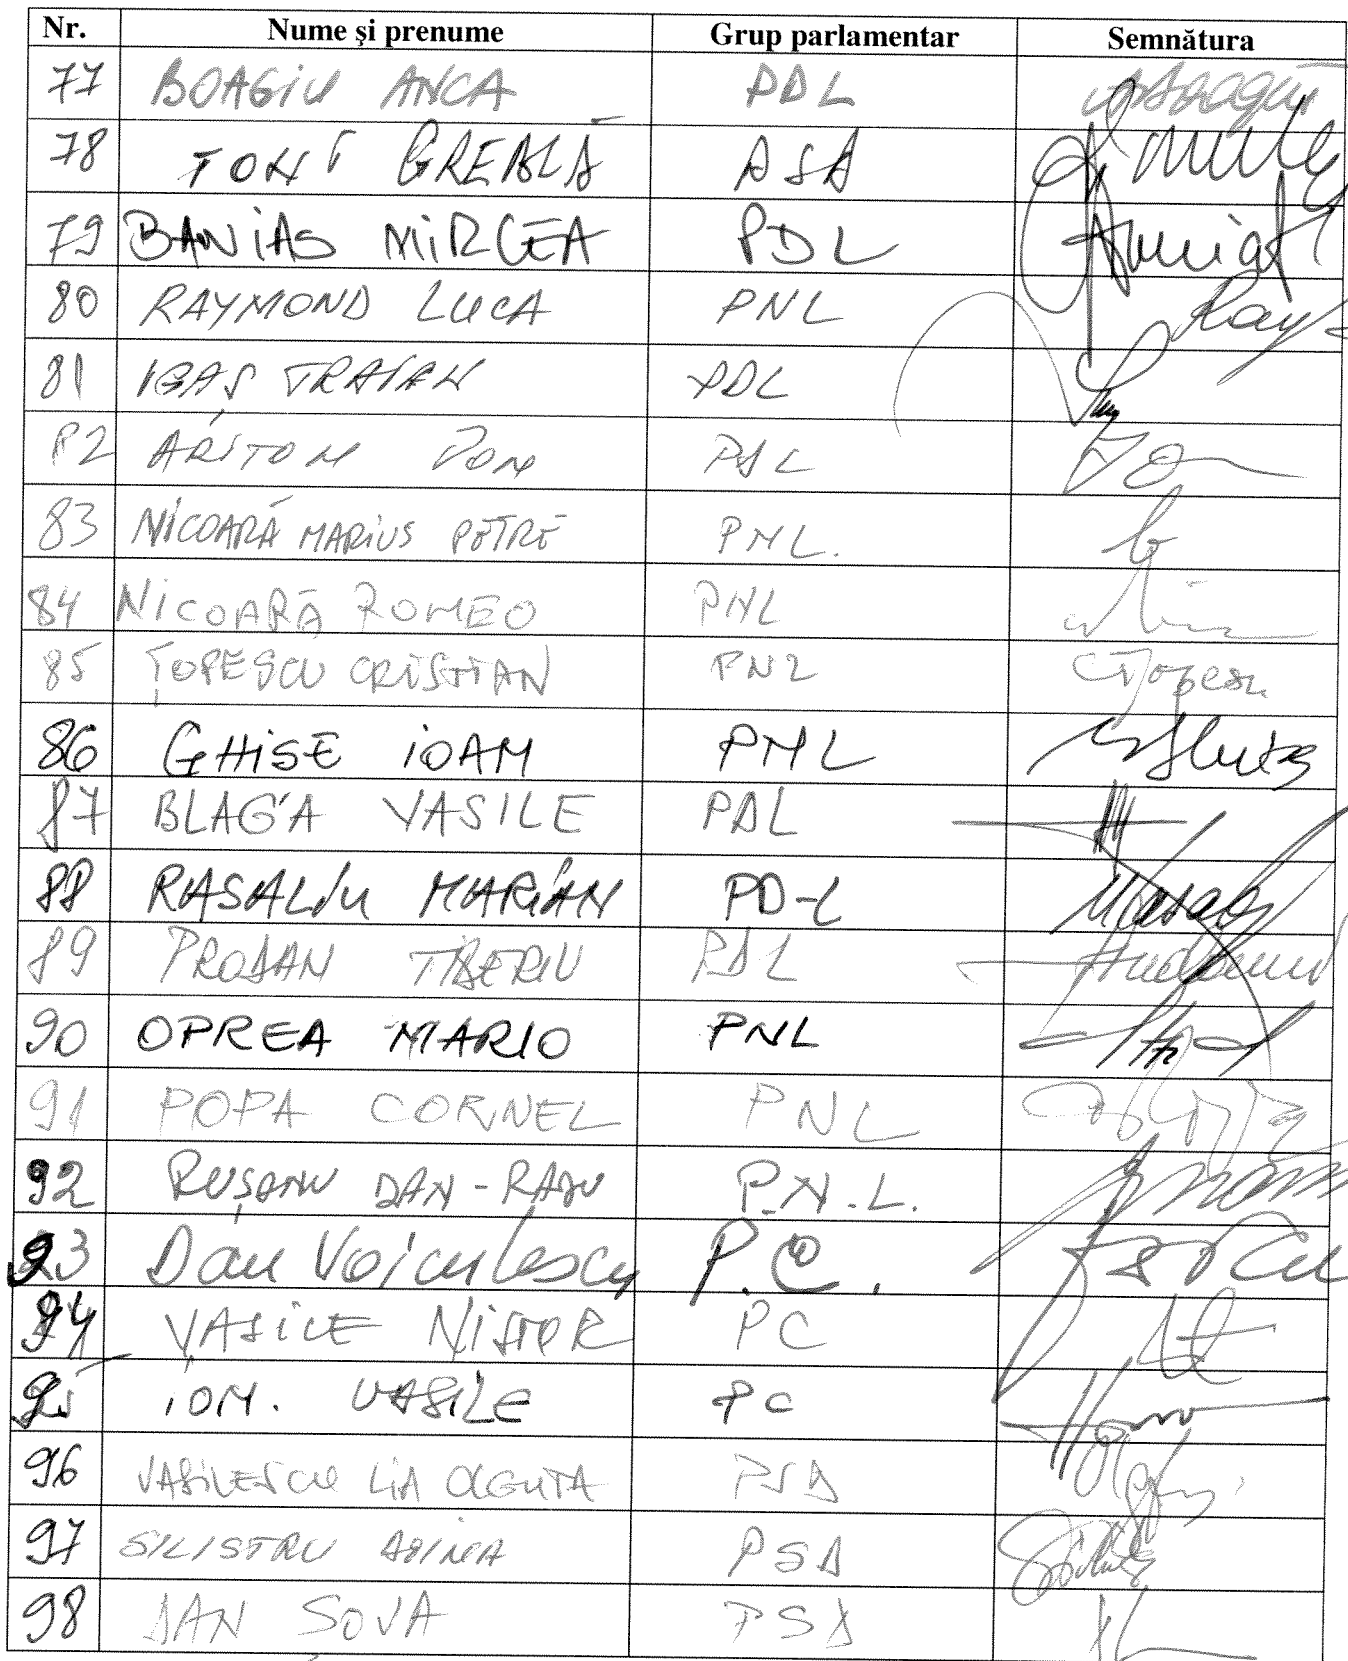 Nr. Nume şi prenume Grup parlamentar Semnătura
77 BOAGIU ANCA PDL
78 TONI GREBLĂ PSD
79 BANIAS MIRCEA PDL
80 RAYMOND LUCA PNL
81 IGAȘ TRAIAN PDL
82 ARITON ION PDL
83 NICOARĂ MARIUS PETRE PNL.
84 NICOARĂ ROMEO PNL
85 ȚOPESCU CRISTIAN PNL
86 GHISE IOAN PNL
87 BLAGA VASILE PDL
88 RASALIU MARIAN PD-L
89 PRODAN TIBERIU PDL
90 OPREA MARIO PNL
91 POPA CORNEL PNL
92 RUȘANU DAN-RADU P.N.L.
93 Dan Voiculescu P.C.
94 VASILE NISTOR PC
95 ION. VASILE PC
96 VASILESCU LIA OLGUTA PSD
97 SILISTRU DOINA PSD
98 DAN ȘOVA PSD